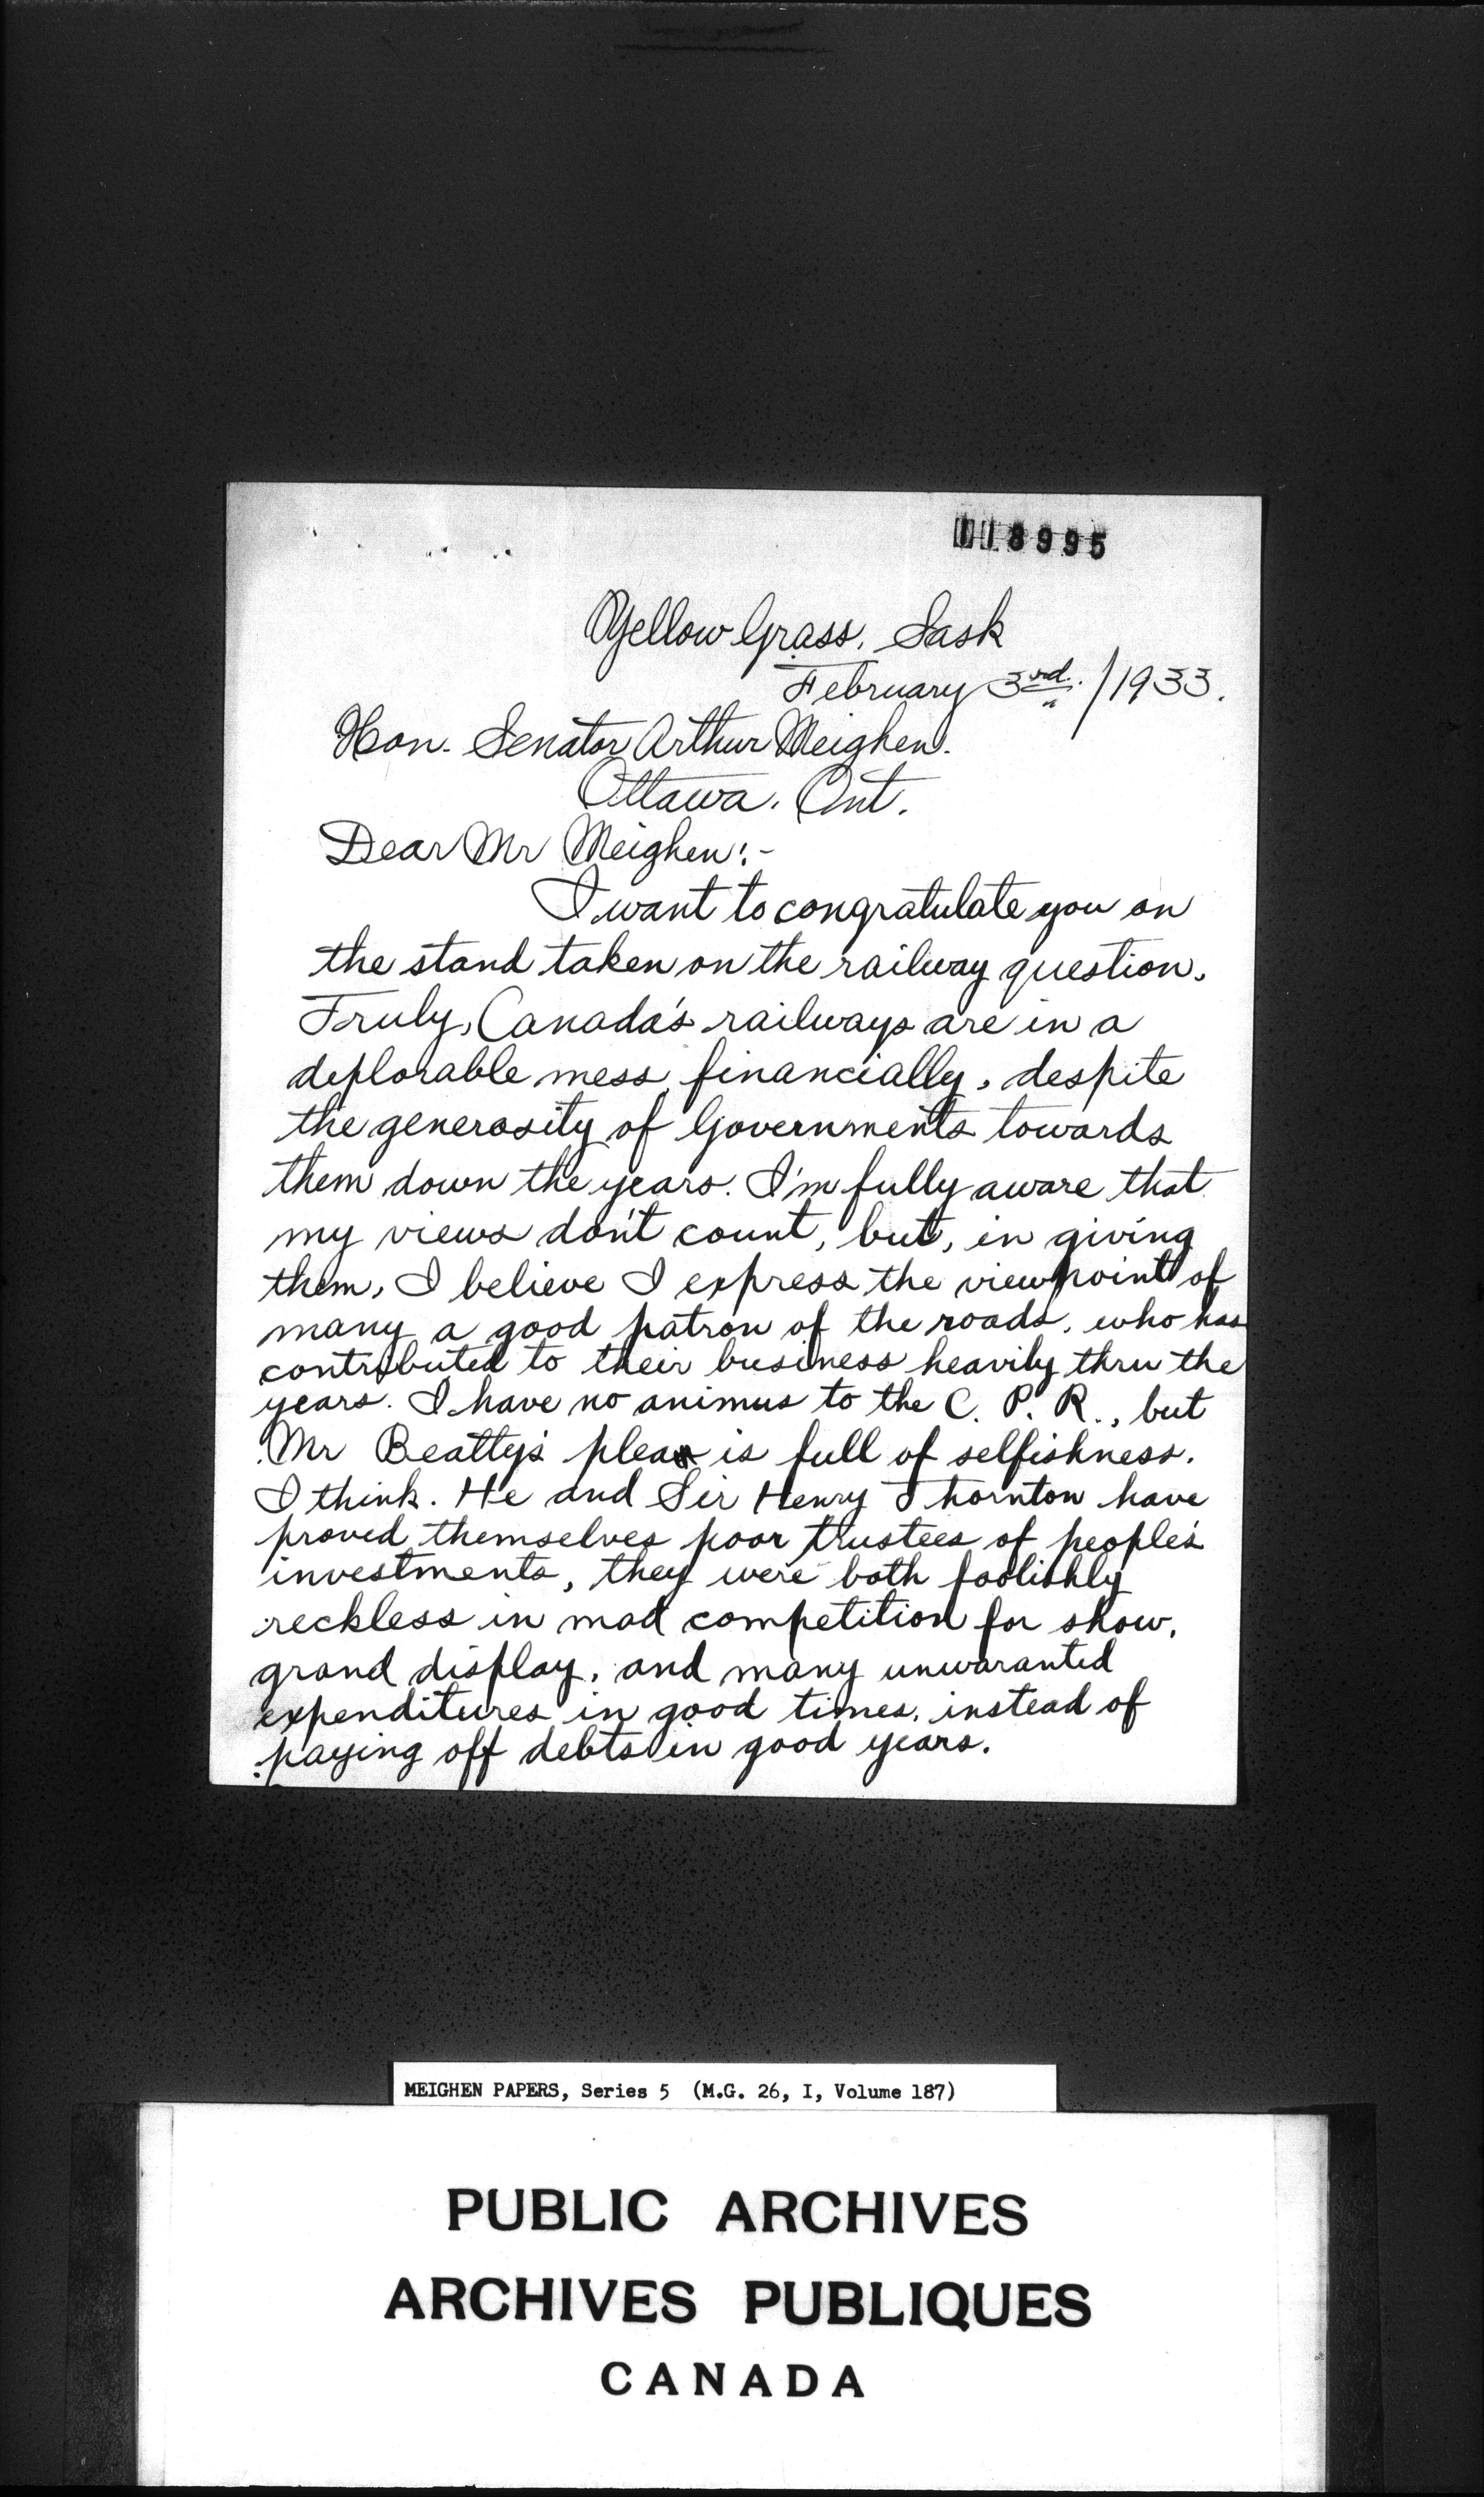 118995
Yellow Grass, Sask
February 3rd. /1933.
Hon. Senator Arthur Meighen.
Ottawa, Ont.
Dear Mr Meighen:-
I want to congratulate you on
the stand taken on the railway question.
Truly, Canada's railways are in a
deplorable mess financially, despite
the generosity of Governments towards
them down the years. I'm fully aware that
my views don't count, but, in giving
them, I believe I express the viewpoint of
many a good patron of the roads, who has
contributed to their business heavily thru the
years. I have no animus to the C. P. R., but
Mr Beatty's plea is full of selfishness.
I think. He and Sir Henry Thornton have
proved themselves poor trustees of people's
investments, they were both foolishly
reckless in mad competition for show,
grand display, and many unwaranted
expenditures in good times, instead of
paying off debts in good years.
MEIGHEN PAPERS, Series 5 (M.G. 26, I, Volume 187)
PUBLIC ARCHIVES
ARCHIVES PUBLIQUES
CANADA